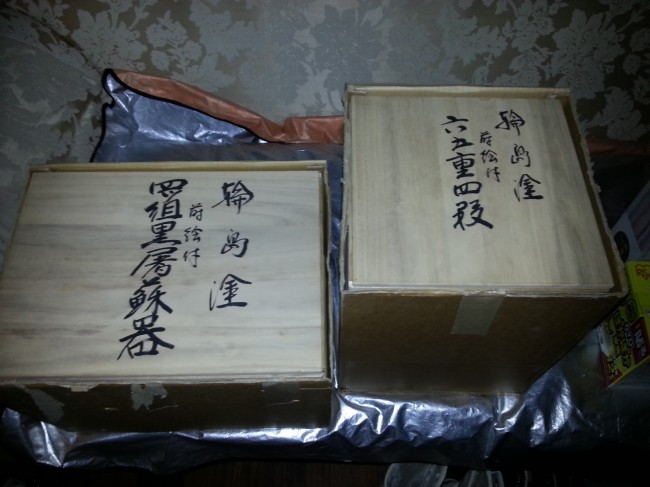 輪島塗
蒔絵付
四組黒屠蘇器
輪島塗
蒔絵付
六五重四段